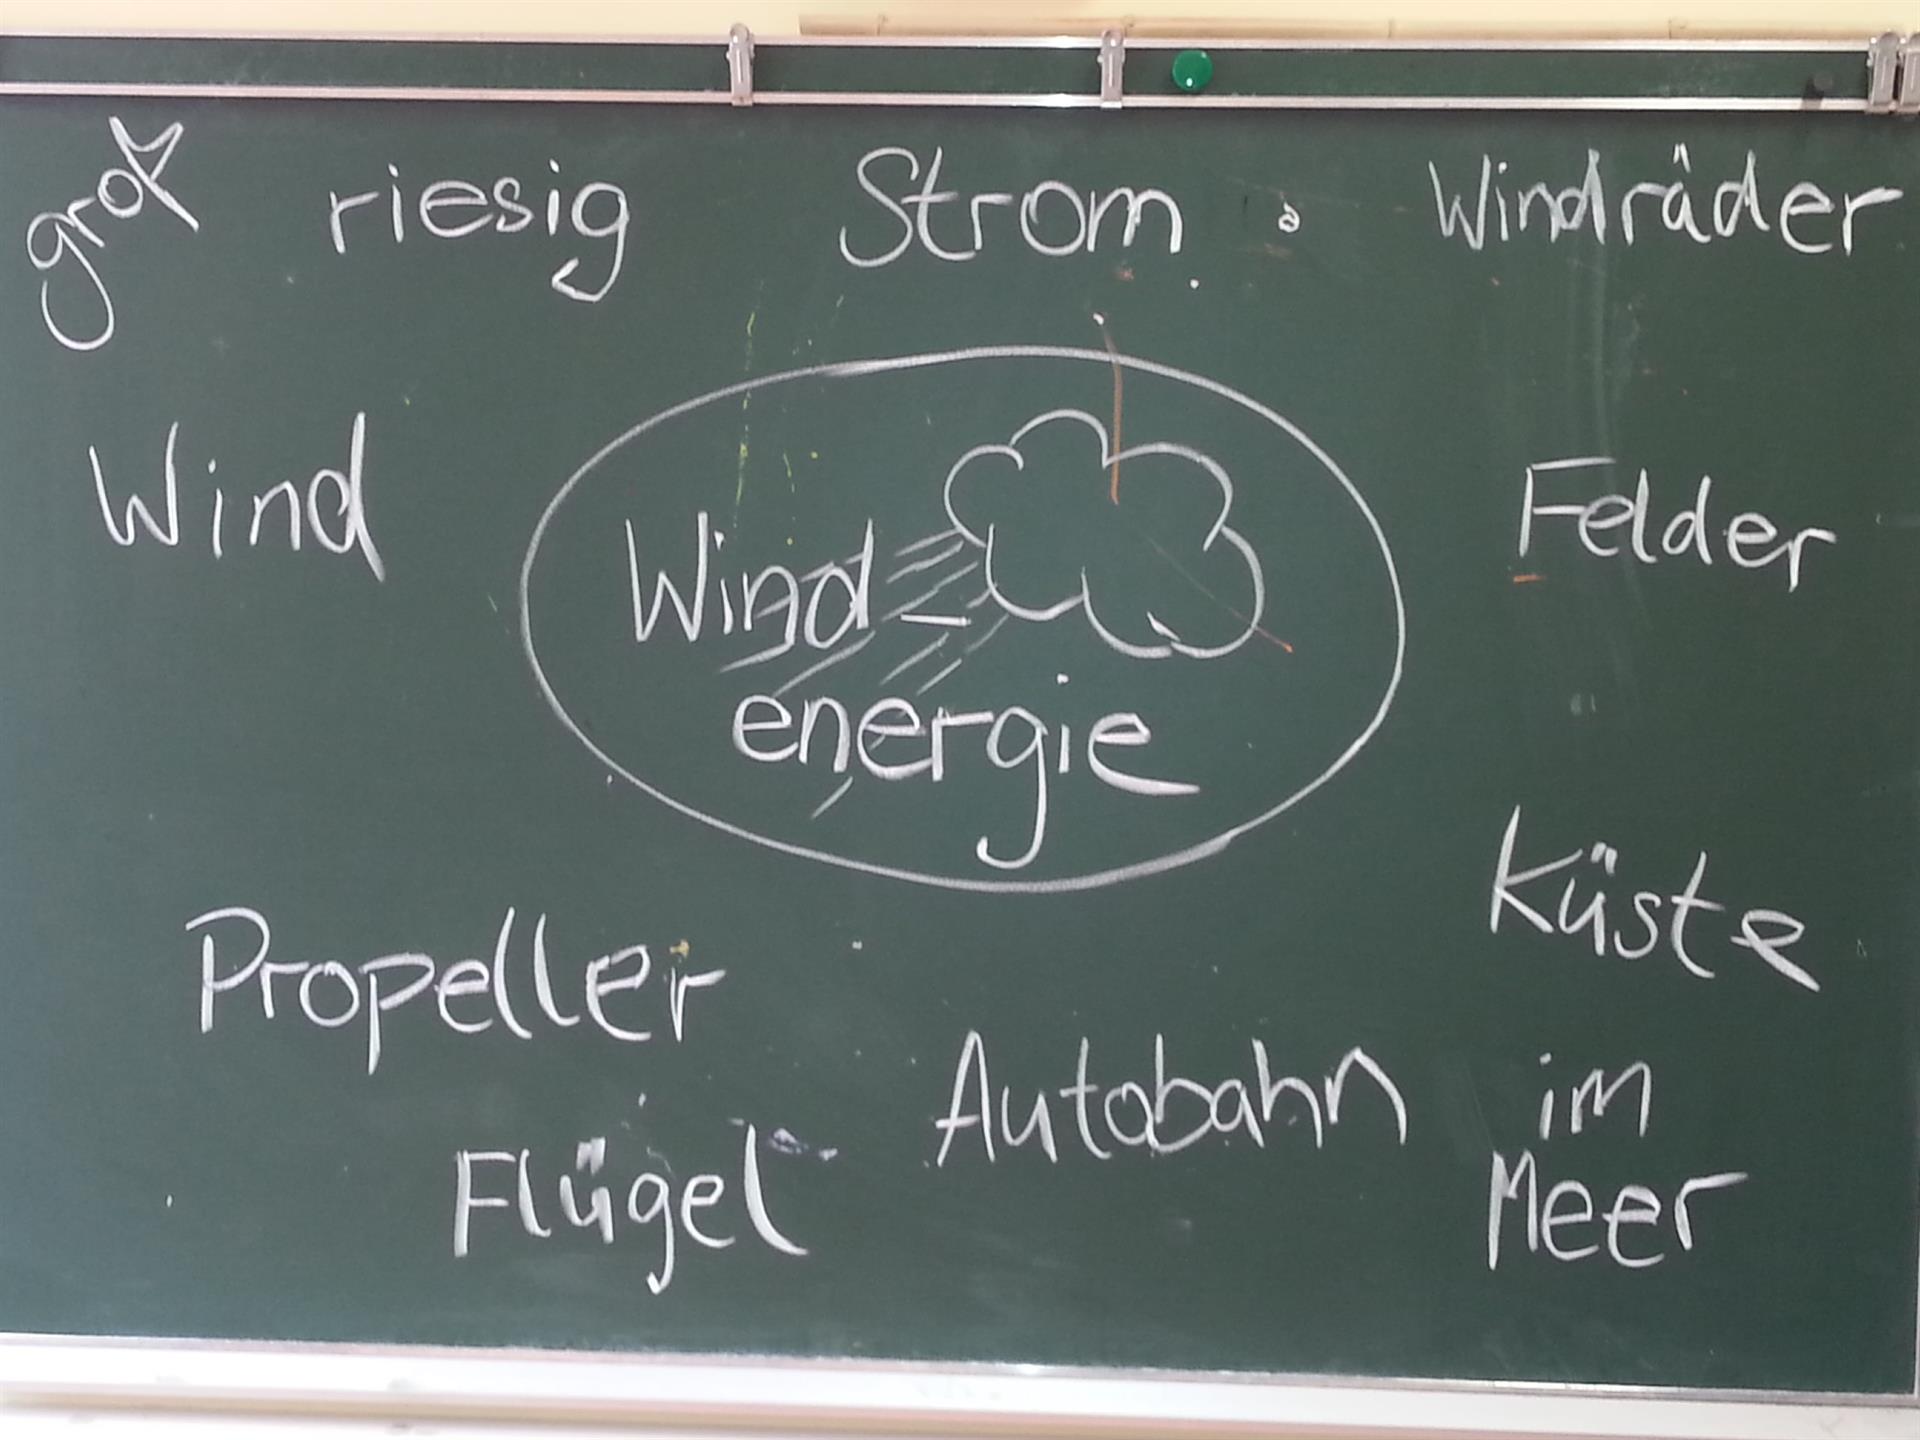 groß riesig Strom Windräder
Wind Felder
Wind-
energie
Küste
Propeller
Autobahn im
Flügel Meer